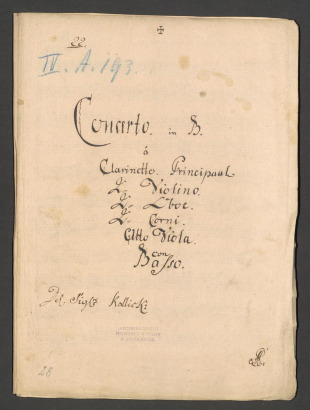 22.
IV. A. 193.
Concerto. in B.
á
Clarinetto. Principaul
2. Violino.
2. Oboe.
2. Corni.
Alto Viola.
con
Basso.
Del Sigre
28